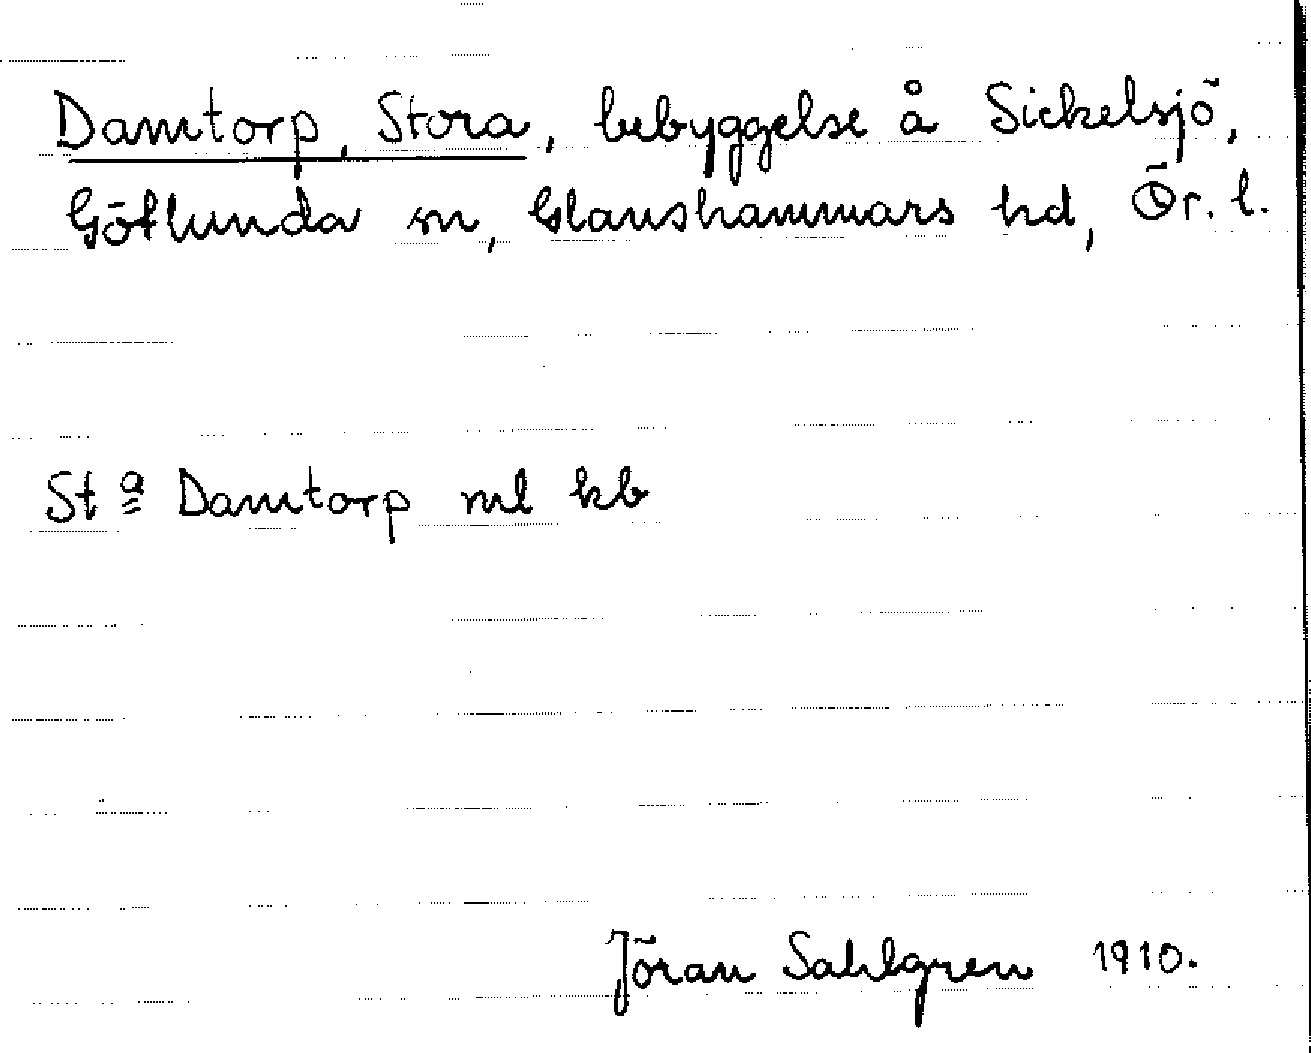 Damtorp, Stora, bebyggelse å Sickelsjö,
Götlunda sn, Glanshammars hd, Ör. l.
Sta Damtorp ml kb
Jöran Sahlgren 1910.